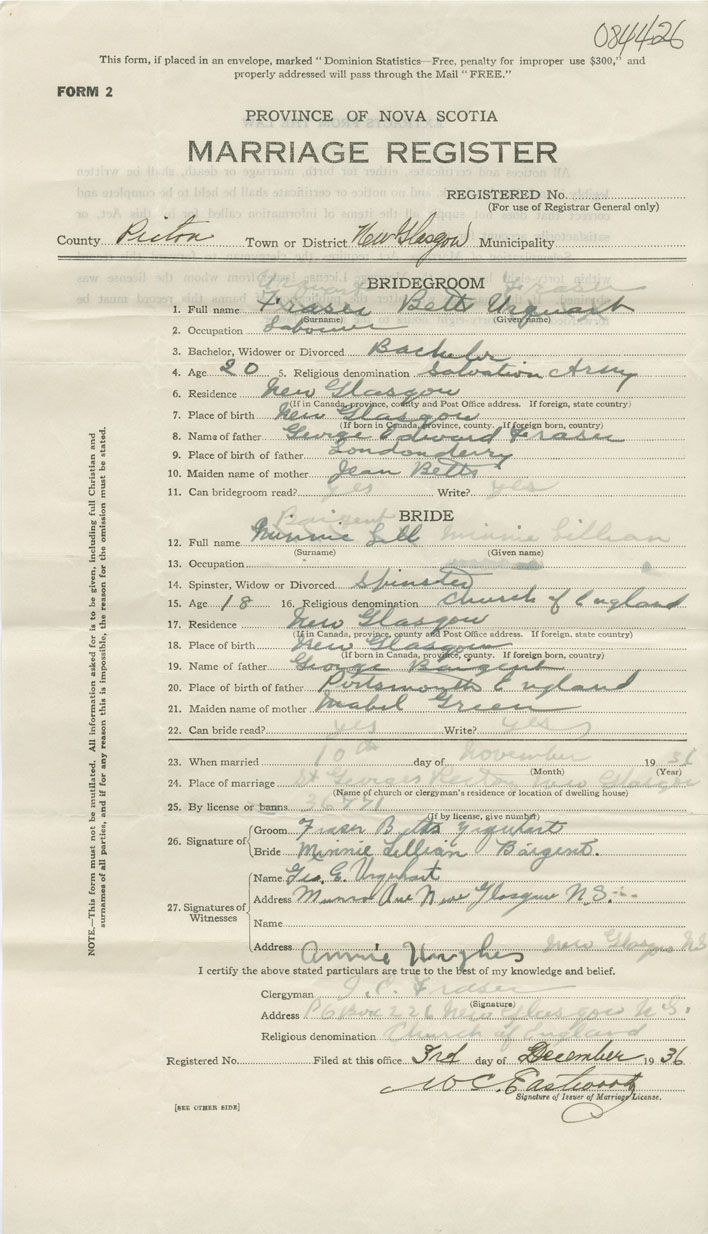 084426
This form, if placed in an envelope, marked "Dominion Statistics—Free, penalty for improper use $300," and
properly addressed will pass through the Mail "FREE."
FORM 2
PROVINCE OF NOVA SCOTIA
MARRIAGE REGISTER
REGISTERED No.
(For use of Registrar General only)
County Pictou Town or District New Glasgow Municipality
BRIDEGROOM
Urquhart Fraser
1. Full name Fraser Betts Urquhart
(Surname) (Given name)
2. Occupation Labourer
3. Bachelor, Widower or Divorced Bachelor
4. Age 20 5. Religious denomination Salvation Army
6. Residence New Glasgow
(If in Canada, province, county and Post Office address. If foreign, state country)
7. Place of birth New Glasgow
(If born in Canada, province, county. If foreign born, country)
8. Name of father George Edward Fraser
9. Place of birth of father Londonderry
10. Maiden name of mother Jean Betts
11. Can bridegroom read? yes Write? yes
Bargent BRIDE
12. Full name Minnie Lill Minnie Lillian
(Surname) (Given name)
13. Occupation
14. Spinster, Widow or Divorced Spinster
15. Age 18 16. Religious denomination Church of England
17. Residence New Glasgow
(If in Canada, province, county and Post Office address. If foreign, state country)
18. Place of birth New Glasgow
(If born in Canada, province, county. If foreign born, country)
19. Name of father George Bargent
20. Place of birth of father Portsmouth England
21. Maiden name of mother Mabel Green
22. Can bride read? yes Write? yes
23. When married 10th day of November 1936
(Month) (Year)
24. Place of marriage St Georges Rector New Glasgow
(Name of church or clergyman's residence or location of dwelling house)
25. By license or banns 36771
(If by license, give number)
26. Signature of Groom Fraser Betts Urquhart
Bride Minnie Lillian Bargent.
27. Signatures of Witnesses Name Geo. E. Urquhart
Address Munro Ave New Glasgow N.S.
Name
Address Annie Hughes New Glasgow NS
I certify the above stated particulars are true to the best of my knowledge and belief.
Clergyman J. E. Fraser
(Signature)
Address P O Box 226 New Glasgow N.S.
Religious denomination Church of England
Registered No. Filed at this office 3rd day of December 1936
W C. Eastwood
Signature of Issuer of Marriage License.
[SEE OTHER SIDE]
NOTE.—This form must not be mutilated. All information asked for is to be given, including full Christian and
surnames of all parties, and if for any reason this is impossible, the reason for the omission must be stated.